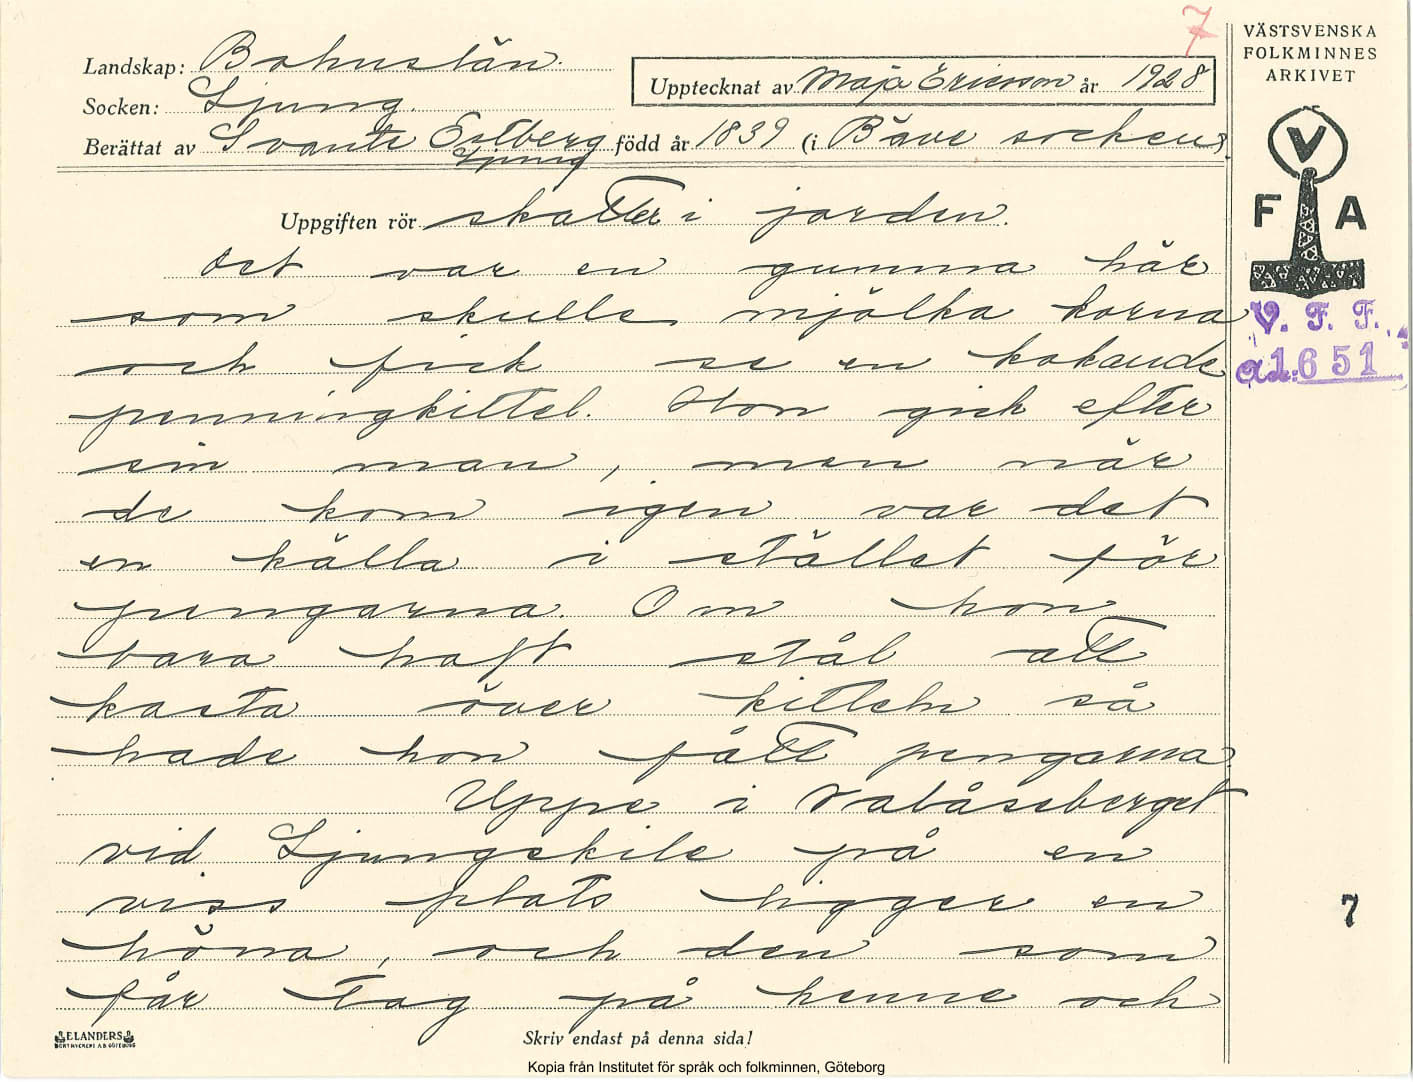 7
VÄSTSVENSKA
FOLKMINNES
ARKIVET
Landskap: Bohuslän.
Upptecknat av Maja Ericsson år 1928
Socken: Ljung.
Berättat av Svante Estberg född år 1839 (i Bäve socken)
Ljung
V
F A
Uppgiften rör skatter i jorden.
Det var en gumma här
som skulle mjölka korna
V. F. F.
och fick se en kokande
a1:651
penningkittel. Hon gick efter
sin man, men när
de kom igen var det
en källa i stället för
pengarna. Om hon
bara haft stål att
kasta över kitteln så
hade hon fått pengarna.
Uppe i Valåseberget
vid Ljungskile på en
viss plats ligger en
7
höna, och den som
får tag på henne och
ELANDERS
BOKTRYCKERI A.B. GÖTEBORG
Skriv endast på denna sida!
Kopia från Institutet för språk och folkminnen, Göteborg